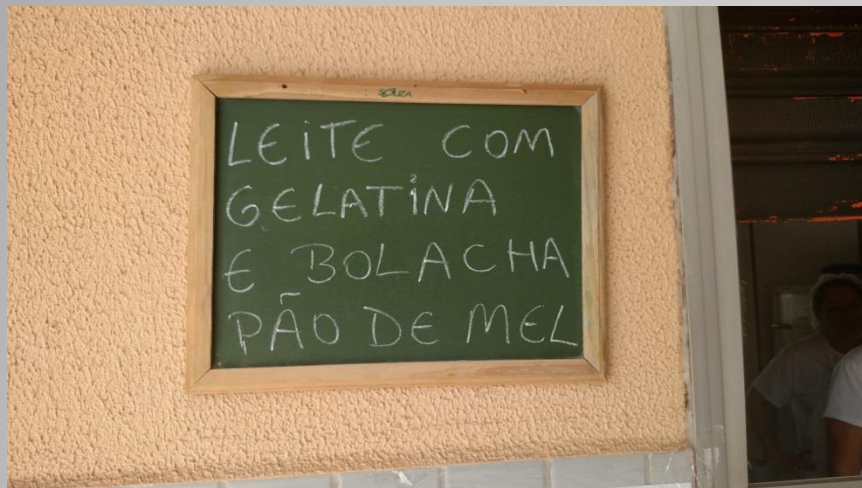 LEITE COM
GELATINA
E BOLACHA
PÃO DE MEL